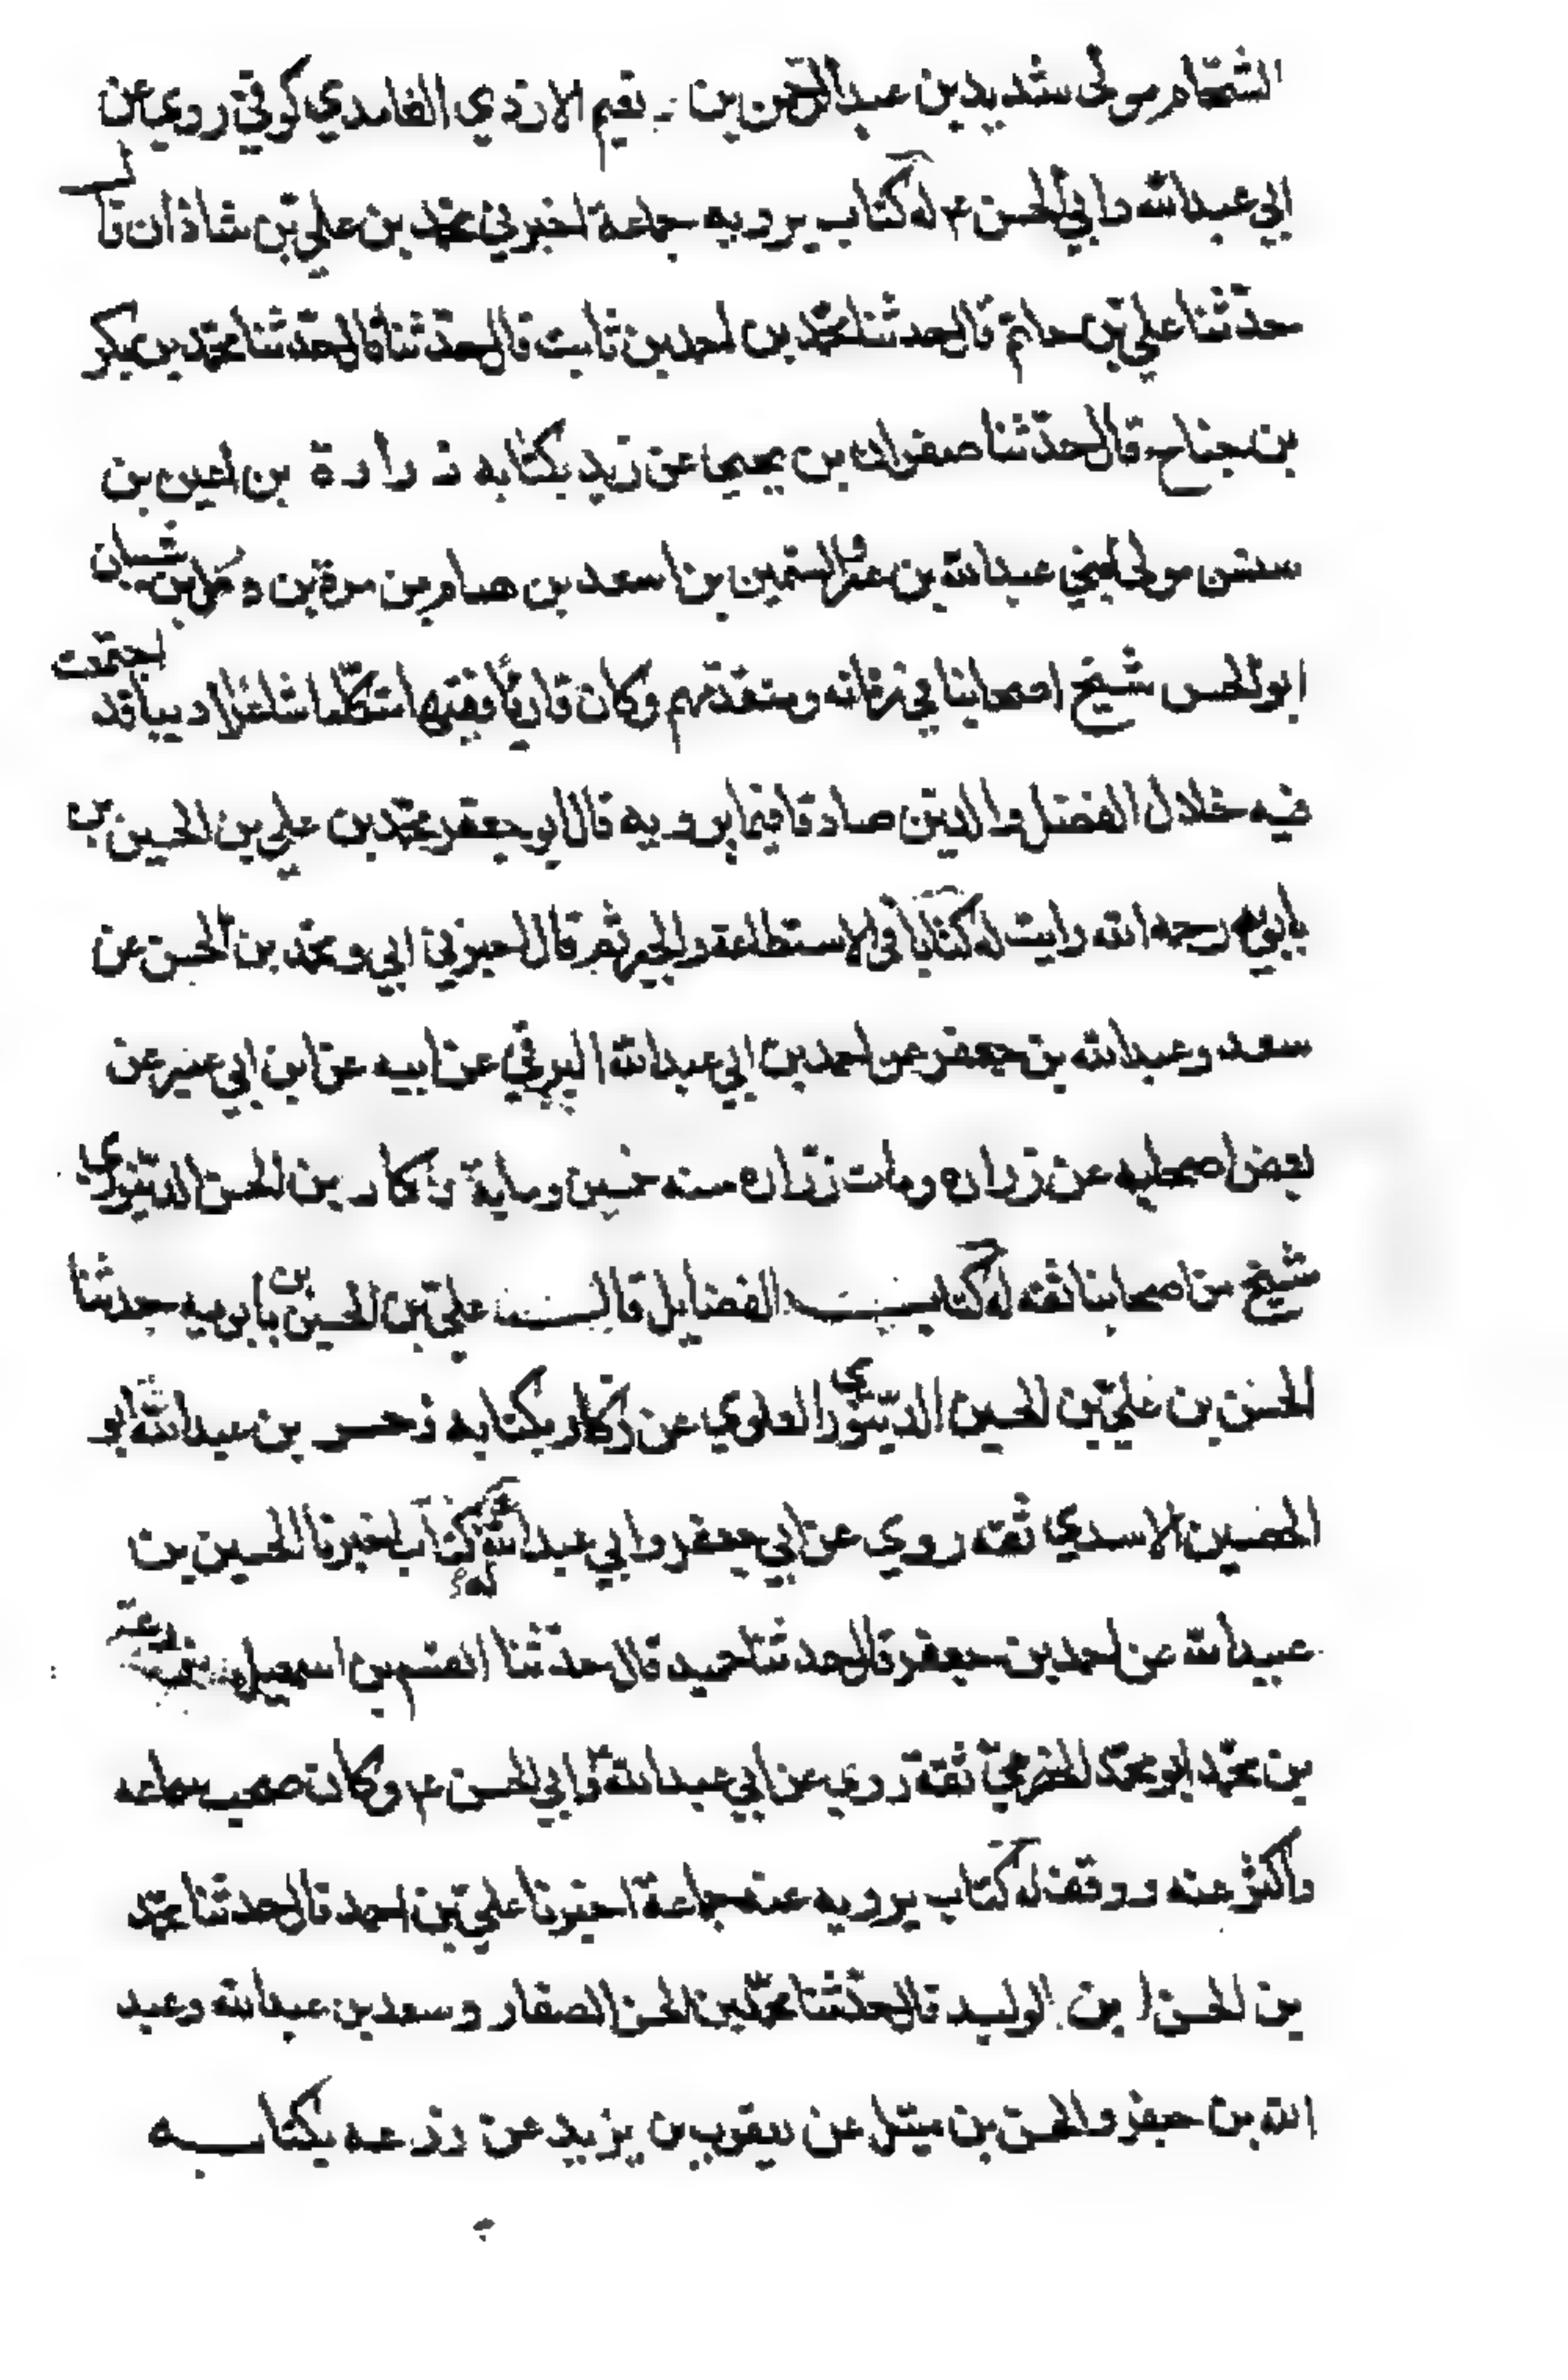 الشحام مولى شديد بن عبد الرحمن بن نعيم الازدي الغامدي كوفي روي عن
ابي عبدالله وابي الحسن ع له كتاب يرويه جماعة اخبرني محمد بن علي بن شاذان قال
حدثنا علي بن حاتم قال حدثنا محمد بن احمد بن ثابت قال حدثنا قال حدثنا محمد بن بكر
بن جناح قال حدثنا صفوان بن يحيى عن زيد بكتابه زرارة بن اعين بن
سنسن مولى لبني عبدالله بن عمرو السمين بن اسعد بن همام بن مرة بن ذهل بن شيبان
ابو الحسن شيخ اصحابنا في زمانه ومتقدمهم وكان قاريا فقيها متكلما شاعرا اديبا قد اجتمعت
فيه خلال الفضل والدين صادقا فيما يرويه قال ابو جعفر محمد بن علي بن الحسين بن
بابويه رحمه الله رايت له كتابا في الاستطاعة والجبر ثم قال اخبرني ابي ومحمد بن الحسن عن
سعد وعبدالله بن جعفر عن احمد بن ابي عبدالله البرقي عن ابيه عن ابن ابي عمير عن
بعض اصحابه عن زراره ومات زراره سنه خمسين ومايه زكار بن الحسن الدينوري
شيخ من اصحابنا ثقه له كتاب الفضايل قال علي بن الحسين بن بابويه حدثنا
الحسن بن علي بن الحسين الدينوري العلوي عن زكار بكتابه زحر بن عبدالله ابو
الحصين الاسدي ثقه روي عن ابي جعفر وابي عبدالله ع له كتاب اخبرنا الحسين بن
عبيدالله عن احمد بن جعفر قال حدثنا حميد قال حدثنا القسم بن اسمعيل زرعة
بن محمد ابو محمد الحضرمي ثقة روي عن ابي عبدالله وابي الحسن ع وكان صحب سماعه
واكثر عنه ووقف له كتاب يرويه عنه جماعة اخبرنا علي بن احمد قال حدثنا محمد
بن الحسن ابن الوليد قال حدثنا محمد بن الحسن الصفار وسعد بن عبدالله وعبد
الله بن جعفر والحسن بن متيل عن يعقوب بن يزيد عن زرعه بكتابه